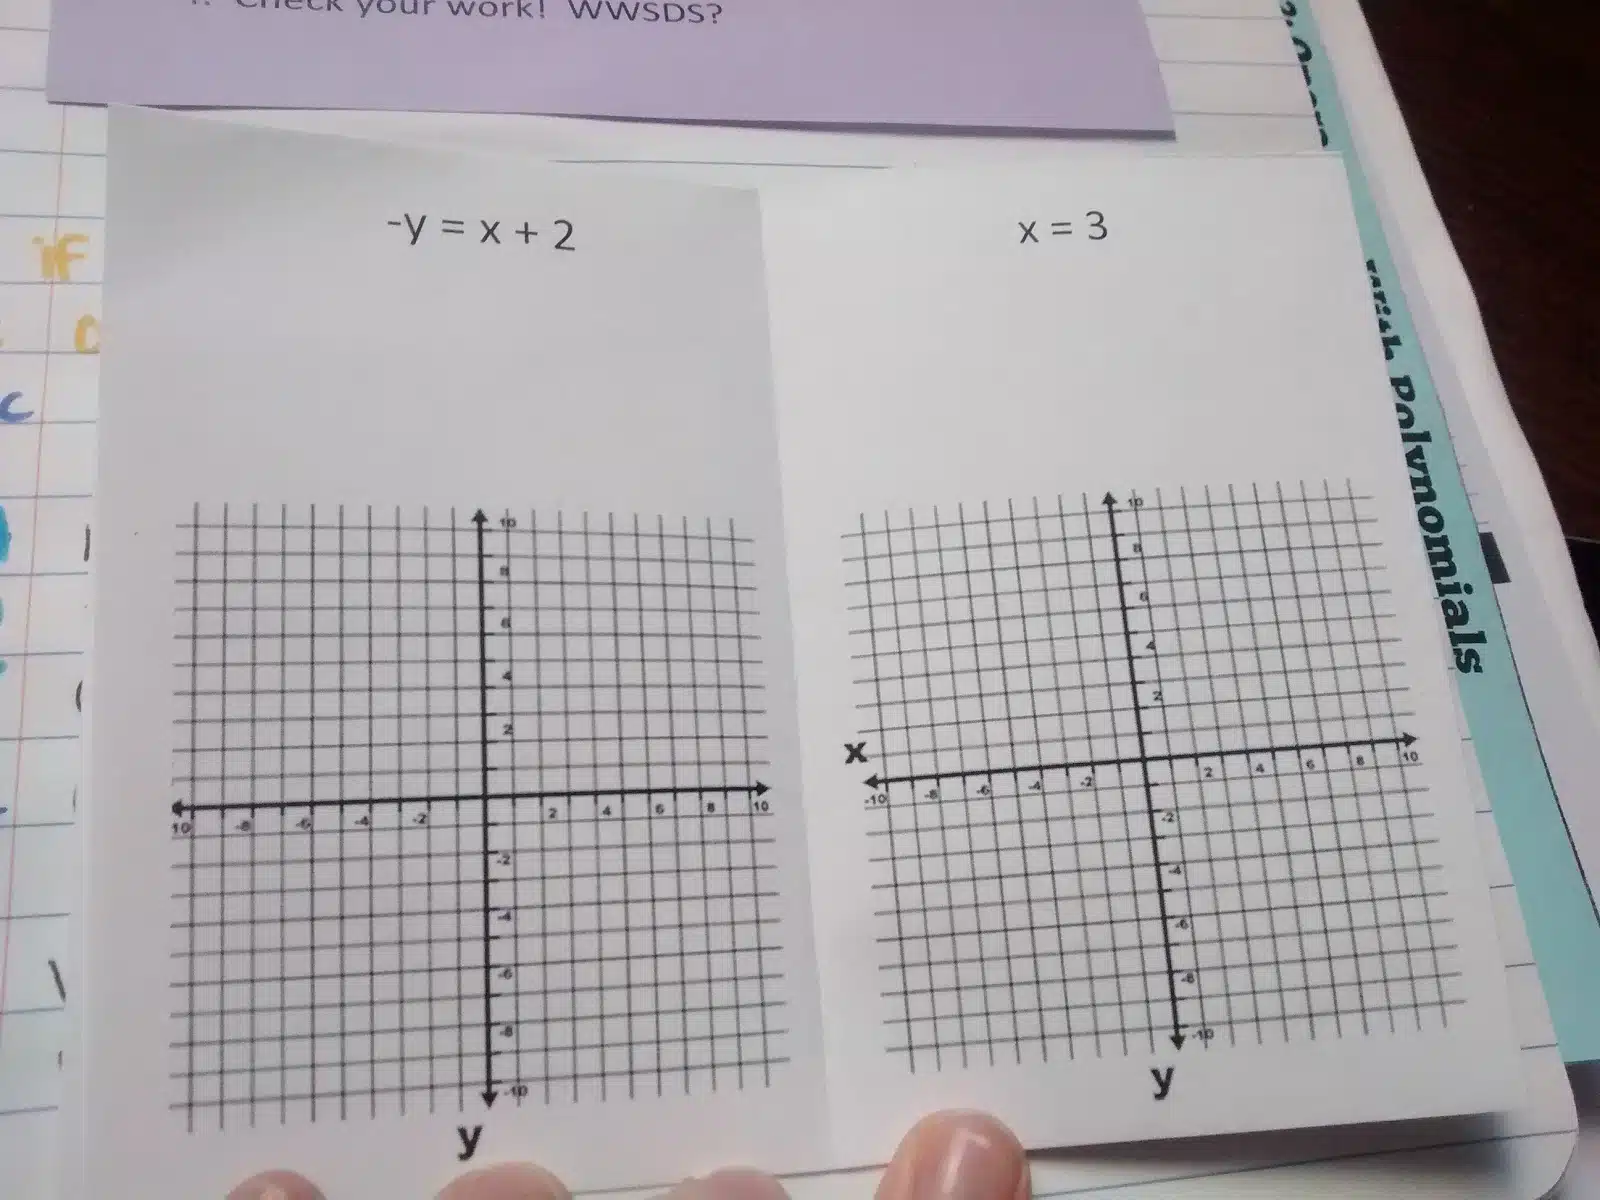 Check your work! WWSDS?
-y = x + 2
x = 3
if
c
With Polynomials
10
8
6
4
2
10 -8 -6 -4 -2 2 4 6 8 10
-2
-4
-6
-8
-10
y
10
8
6
4
2
x
-10 -8 -6 -4 -2 2 4 6 8 10
-2
-4
-6
-8
-10
y